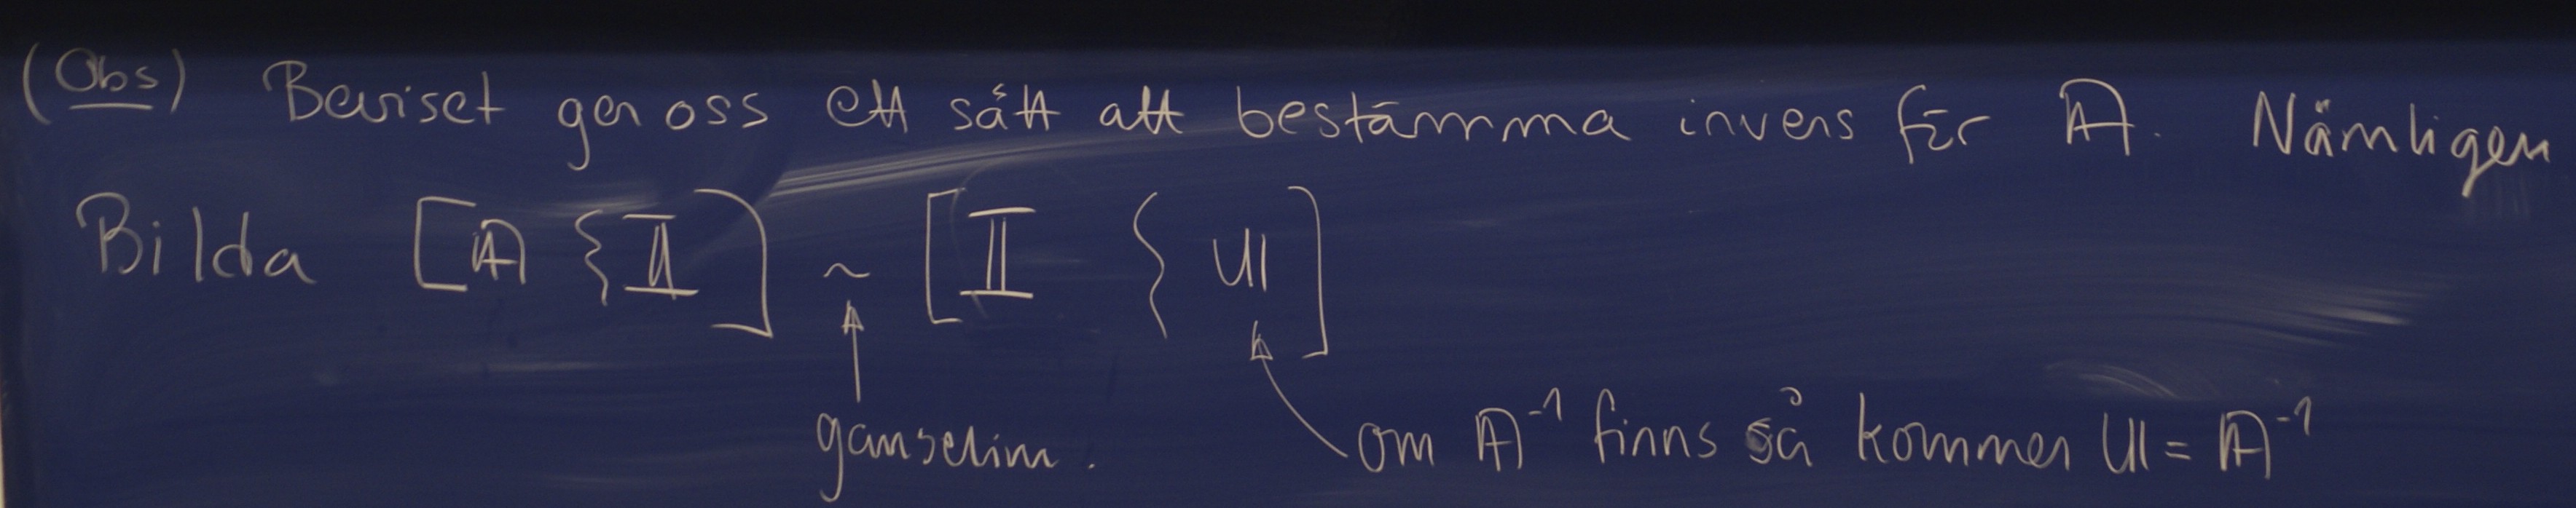 (Obs) Beviset ger oss ett sätt att bestämma invers för 𝔸. Nämligen
Bilda [𝔸 { 𝕀] ~ [𝕀 { 𝕌]
↑
gausselim. om 𝔸⁻¹ finns så kommer 𝕌 = 𝔸⁻¹